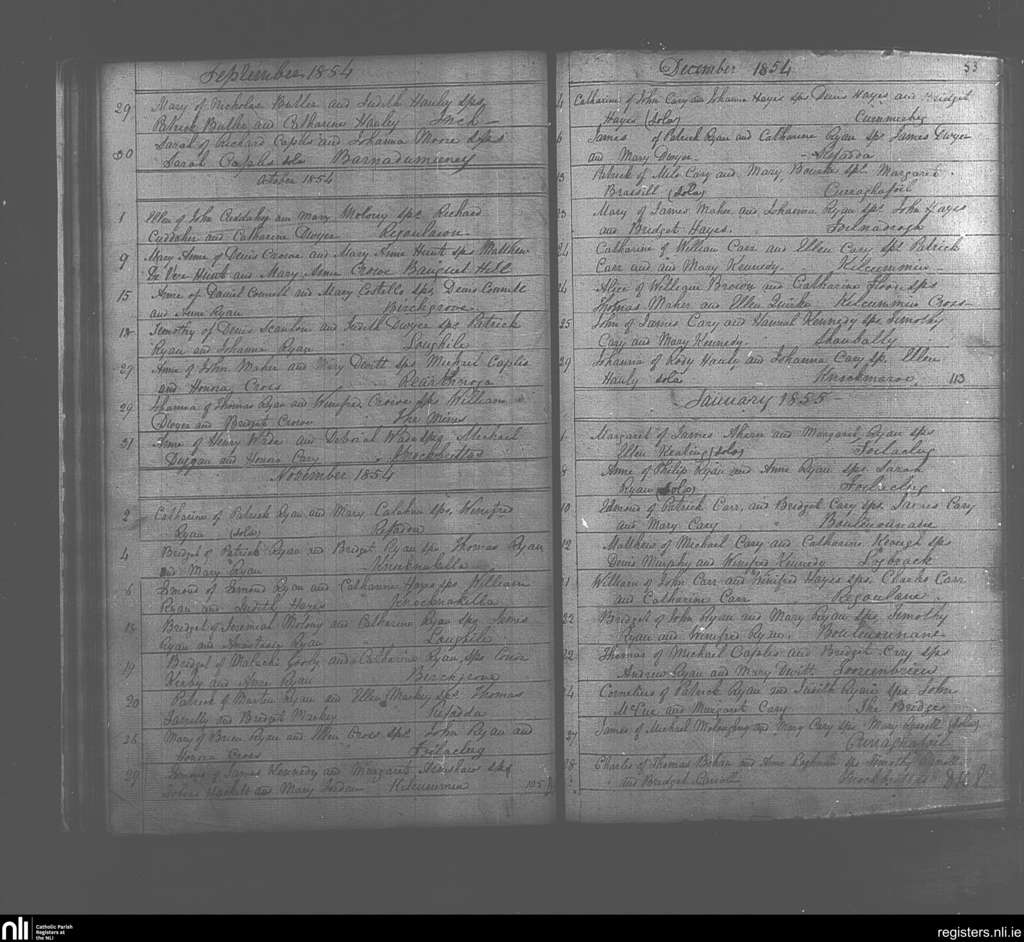 September 1854
29 Mary of Nicholas Butler and Judith Hauly sps
Patrick Butler and Catharine Hauly Inch
30 Sarah of Richard Caplis and Johanna Moore sps
Sarah Caplis solo Barnadumieney
October 1854
1 Ellen of John and Mary Molony sps Richard
and Catharine Dwyer
9 Mary Anne of Denis Crowe and Mary Anne Hunt sps Matthew
De Vere Hunt and Mary Anne Crowe Banquet Hill
15 Anne of Daniel Connell and Mary Costello sps Denis Connell
and Anne Ryan Birchgrove
18 Timothy of Denis Scanlon and Judith Dwyer sps Patrick
Ryan and Johanna Ryan Loughile
27 Anne of John Maher and Mary Devitt sps Michael Caplis
and Honora Cross
29 Johanna of Thomas Ryan and Winifred Crowe sps William
Dwyer and Bridget Crowe The Mines
31 Anne of Henry Wade and Deborah Wade sps Michael
Duggan and Honora Cary
November 1854
2 Catharine of Patrick Ryan and Mary Calahan sps Winifred
Ryan (solo) Refadda
4 Bridget of Patrick Ryan and Bridget Ryan sps Thomas Ryan
and Mary Ryan Knocknakella
6 Edmond of Edmond Ryan and Catharine Hayes sps William
Ryan and Judith Hayes Knocknakella
18 Bridget of Jeremiah Molony and Catharine Ryan sps James
Ryan and Anastasia Ryan Loughile
19 Bridget of Malachi Goody and Catharine Ryan sps
Kirby and Anne Ryan Birchgrove
20 Patrick of Martin Ryan and Ellen Markey sps Thomas
Farrelly and Bridget Markey Refadda
26 Mary of Brien Ryan and Ellen Cross sps John Ryan and
Honora Cross Foilaclug
29 of James Kennedy and Margaret sps
and Mary Jordan Kilcummin 105
December 1854 53
4 Catharine of John Cary and Johanna Hayes sps Denis Hayes and Bridget
Hayes (solo)
6 James of Patrick Ryan and Catharine Ryan sps James Dwyer
and Mary Dwyer Refadda
13 Patrick of Milo Cary and Mary Bourke sps Margaret
Brassill (solo) Curraghafoil
23 Mary of James Maher and Johanna Ryan sps John Hayes
and Bridget Hayes
24 Catharine of William Carr and Ellen Cary sps Patrick
Carr and Mary Kennedy Kilcummin
24 Alice of William Brown and Catharine Floor sps
Thomas Maher and Ellen Quirke Kilcummin Cross
25 John of James Cary and Hannah Kennedy sps Timothy
Cary and Mary Kennedy Shanbally
29 Johanna of Rody Hauly and Johanna Cary sps Ellen
Hauly solo Knockmaroe 113
January 1855
1 Margaret of James Ahern and Margaret Ryan sps
Ellen Keating (solo) Foilaclug
8 Anne of Philip Ryan and Anne Ryan sps Sarah
Ryan (solo) Foilaclug
10 Edmond of Patrick Carr and Bridget Cary sps James Cary
and Mary Cary Boulenounane
12 Matthew of Michael Cary and Catharine Keough sps
Denis Murphy and Winifred Kennedy
21 William of John Carr and Winifred Hayes sps Charles Carr
and Catharine Carr
22 Bridget of John Ryan and Mary Ryan sps Timothy
Ryan and Winifred Ryan Boulenounane
22 Thomas of Michael Caplis and Bridget Cary sps
Andrew Ryan and Mary Devitt Toorenbrien
24 Cornelius of Patrick Ryan and Judith Ryan sps John
McCue and Margaret Cary The Bridges
27 James of Michael and Mary Cary sps Mary (solo)
Curraghafoil
28 Charles of Thomas Bohan and Anne sps Timothy
and Bridget
nli Catholic Parish
Registers at
the NLI
registers.nli.ie